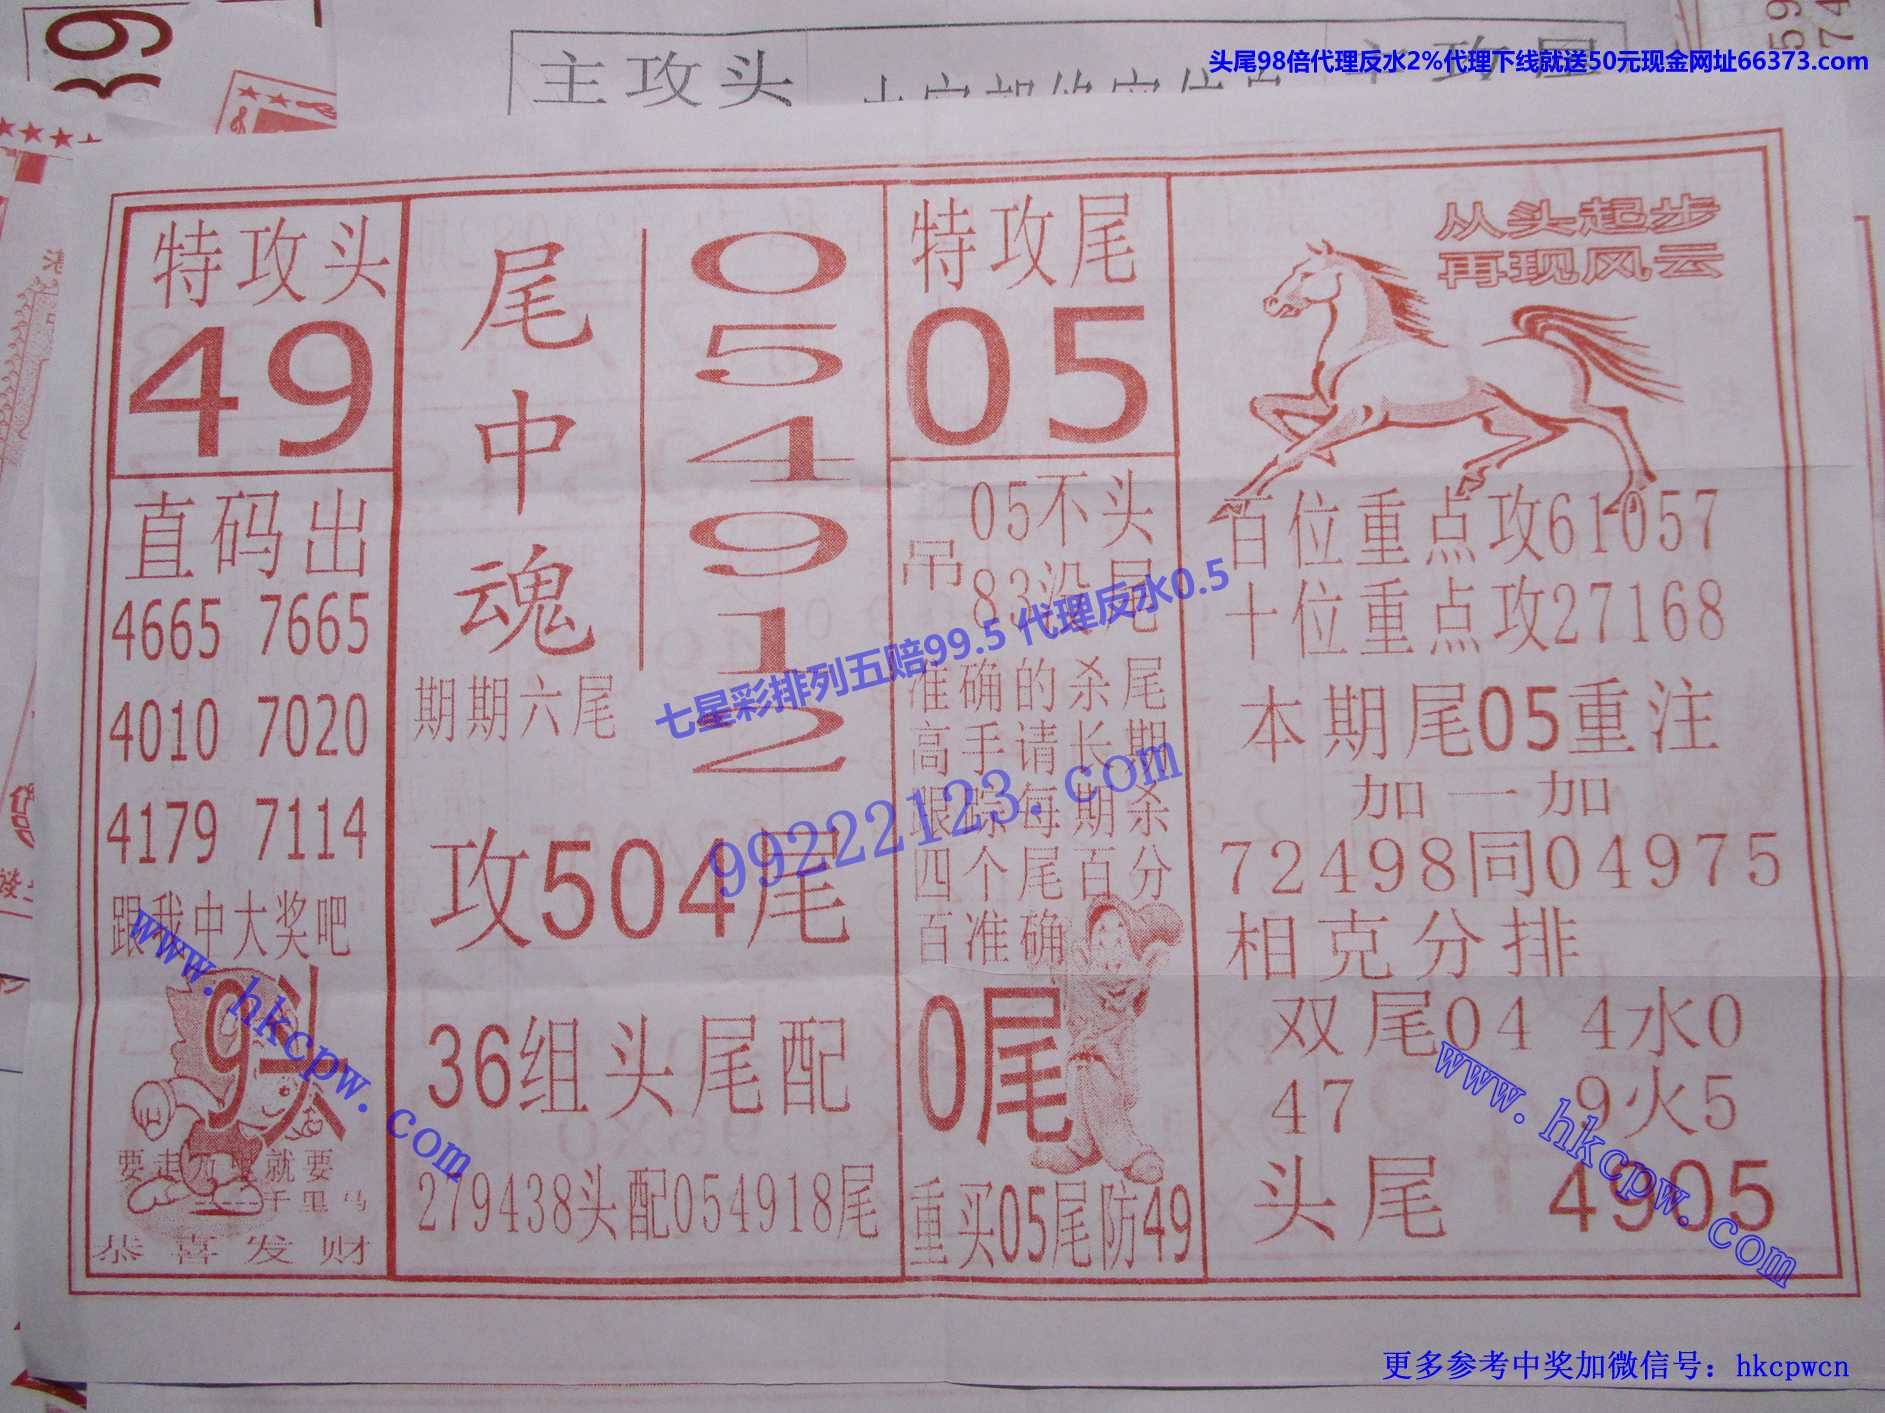 头尾98倍代理反水2%代理下线就送50元现金网址66373.com
主攻头
特攻头
49
直码出
4665 7665
4010 7020
4179 7114
跟我中大奖吧
9头
要走万里就要
千里马
恭喜发财
尾中魂
054912
期期六尾
攻504尾
36组头尾配
279438头配054918尾
特攻尾
05
吊
05不头
83没尾
准确的杀尾
高手请长期
跟踪每期杀
四个尾百分
百准确
0尾
重买05尾防49
从头起步
再现风云
百位重点攻61057
十位重点攻27168
本期尾05重注
加一加
72498同04975
相克分排
双尾04 4水0
47 9火5
头尾 4905
七星彩排列五赔99.5 代理反水0.5
99222123.com
www.hkcpw.com
www.hkcpw.com
更多参考中奖加微信号：hkcpwcn